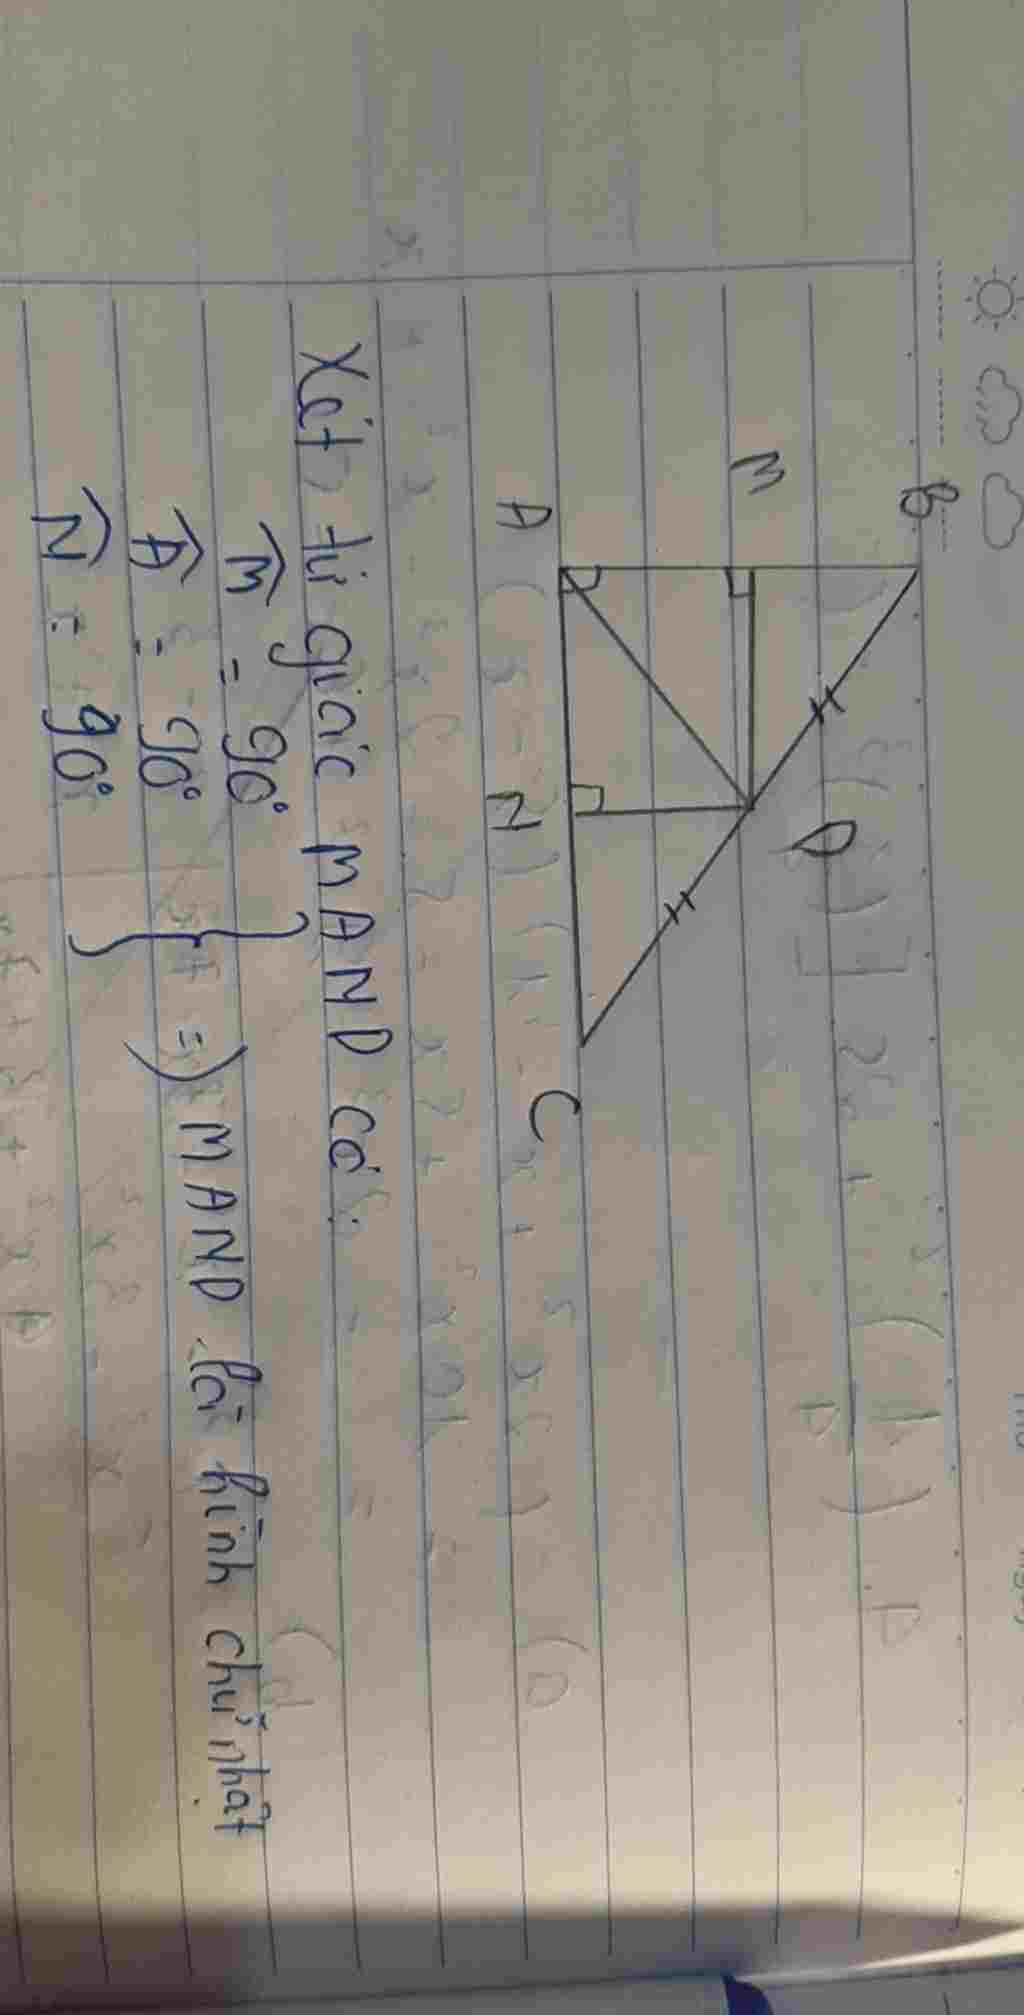 B
M
D
A
N
C
Xét tứ giác MAND có:
M̂ = 90°
Â = 90° => MAND là hình chữ nhật
N̂ = 90°